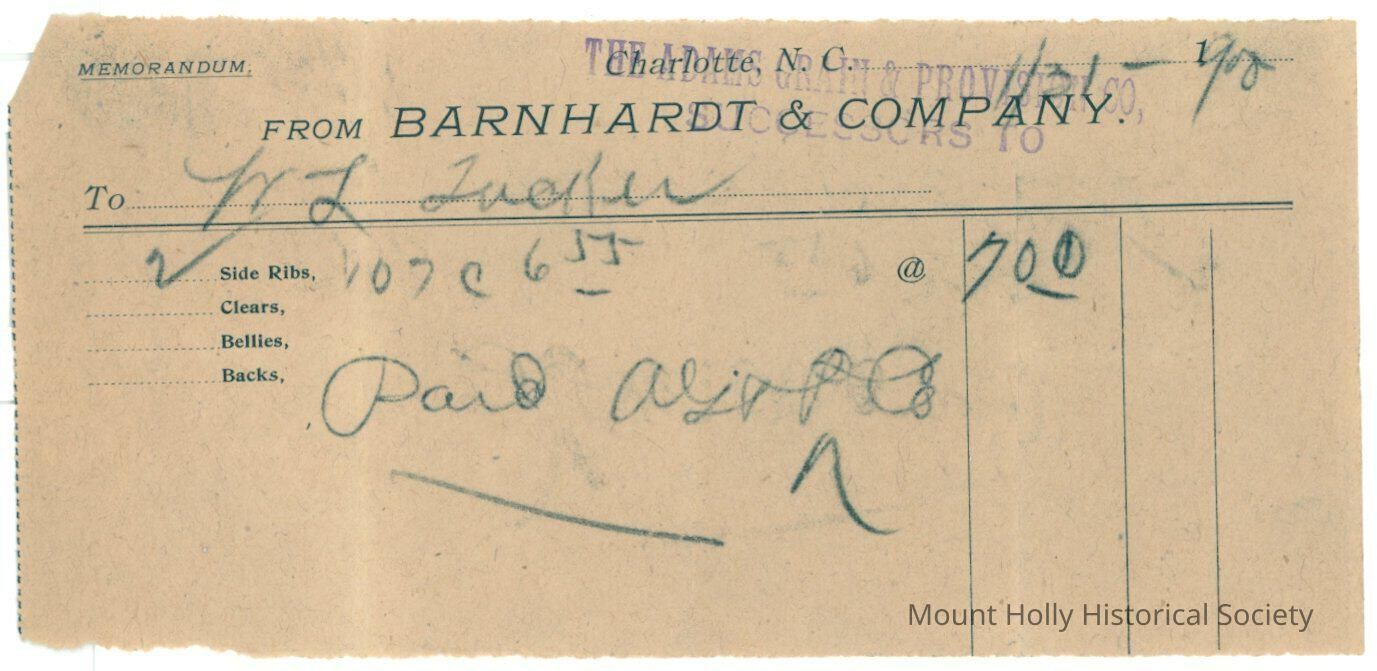 MEMORANDUM.
THE ADAMS GRAIN & PROVISION CO,
Charlotte, N. C. 1/31 - 1900
SUCCESSORS TO
FROM BARNHARDT & COMPANY.
To W L Tucker
2 Side Ribs, 107 @ 6 55 @ 700
Clears,
Bellies,
Backs,
Paid
Mount Holly Historical Society